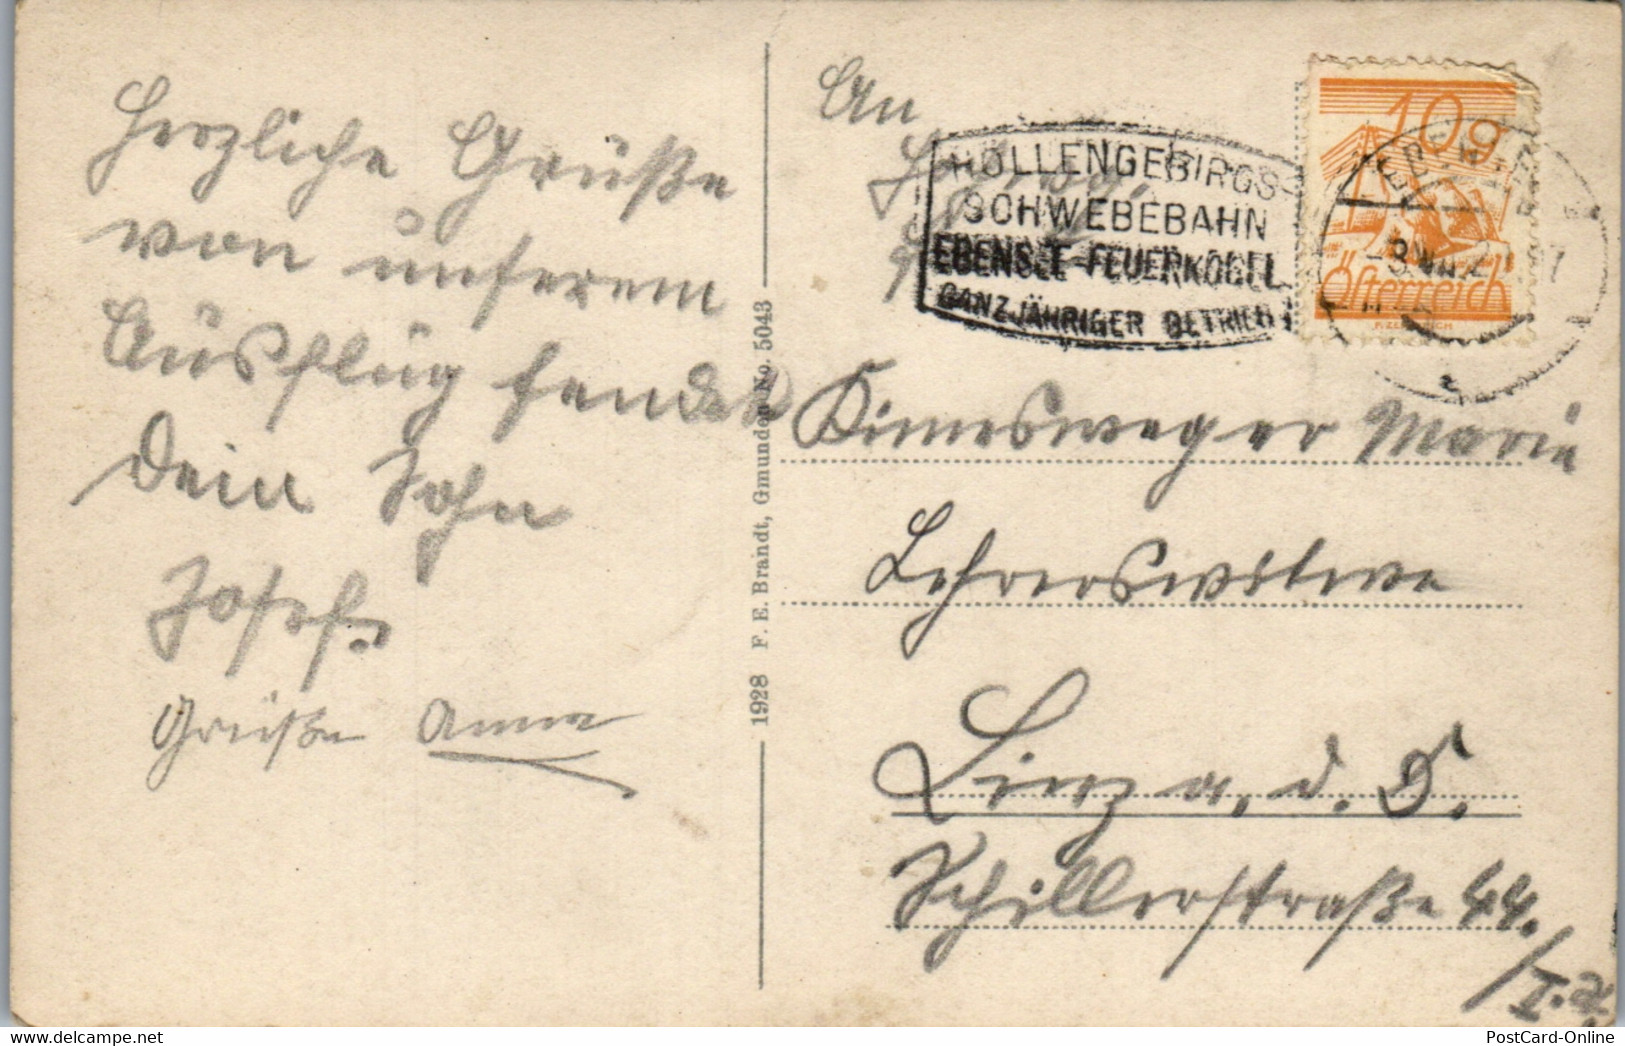 Herzliche Grüße
von unserem
Ausflug sendet
Dein Sohn
Josef.
Grüße Anna
1928 F. E. Brandt, Gmunden No. 5043
An
HÖLLENGEBIRGS-
SCHWEBEBAHN
EBENSEE-FEUERKOGEL
GANZJÄHRIGER BETRIEB
10g
Österreich
Marie
Lehrerswitwe
Linz a. d. D.
Schillerstraße 44.
PostCard-Online